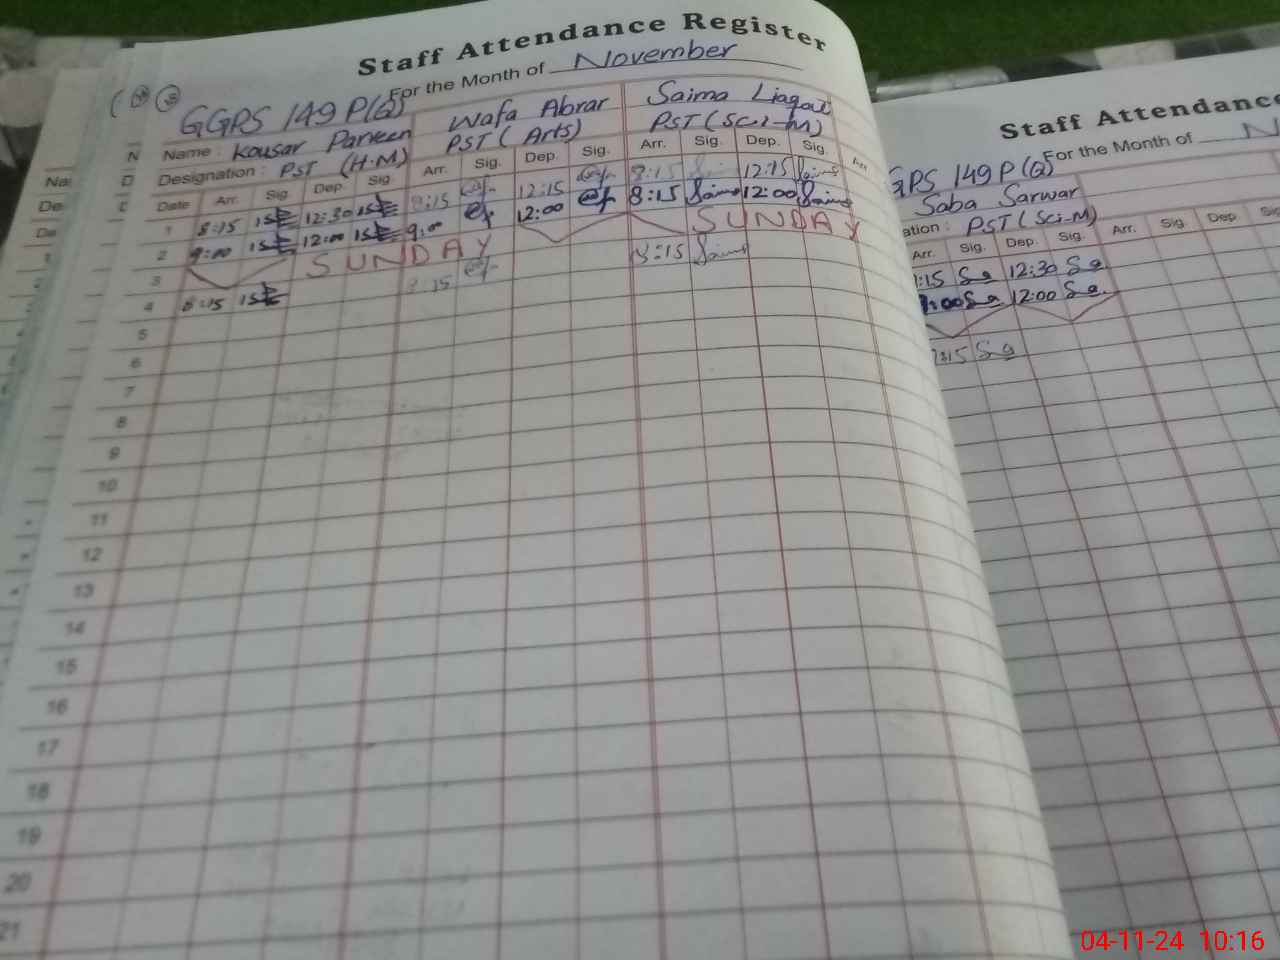 Staff Attendance Register
For the Month of November
GGPS 149 P(G)
Name : Kousar Parveen
Designation : PST (H.M)
Wafa Abrar
PST (Arts)
Saima Liaqat
PST (Sci-M)
Date Arr. Sig. Dep. Sig. Arr. Sig. Dep. Sig. Arr. Sig. Dep. Sig. Arr.
1 8:15 12:30 8:15 12:15 8:15 12:15
2 9:00 12:00 9:00 12:00 8:15 Saima 12:00 Saima
3 SUNDAY SUNDAY
4 8:15 8:15 8:15 Saima
5
6
7
8
9
10
11
12
13
14
15
16
17
18
19
20
21
Staff Attendance
For the Month of N
GPS 149 P(G)
Saba Sarwar
ation : PST (Sci-M)
Arr. Sig. Dep. Sig. Arr. Sig. Dep.
:15 Sa 12:30 Sa
9:00 Sa 12:00 Sa
8:15 Sa
Na
De
Da
N
D
04-11-24 10:16